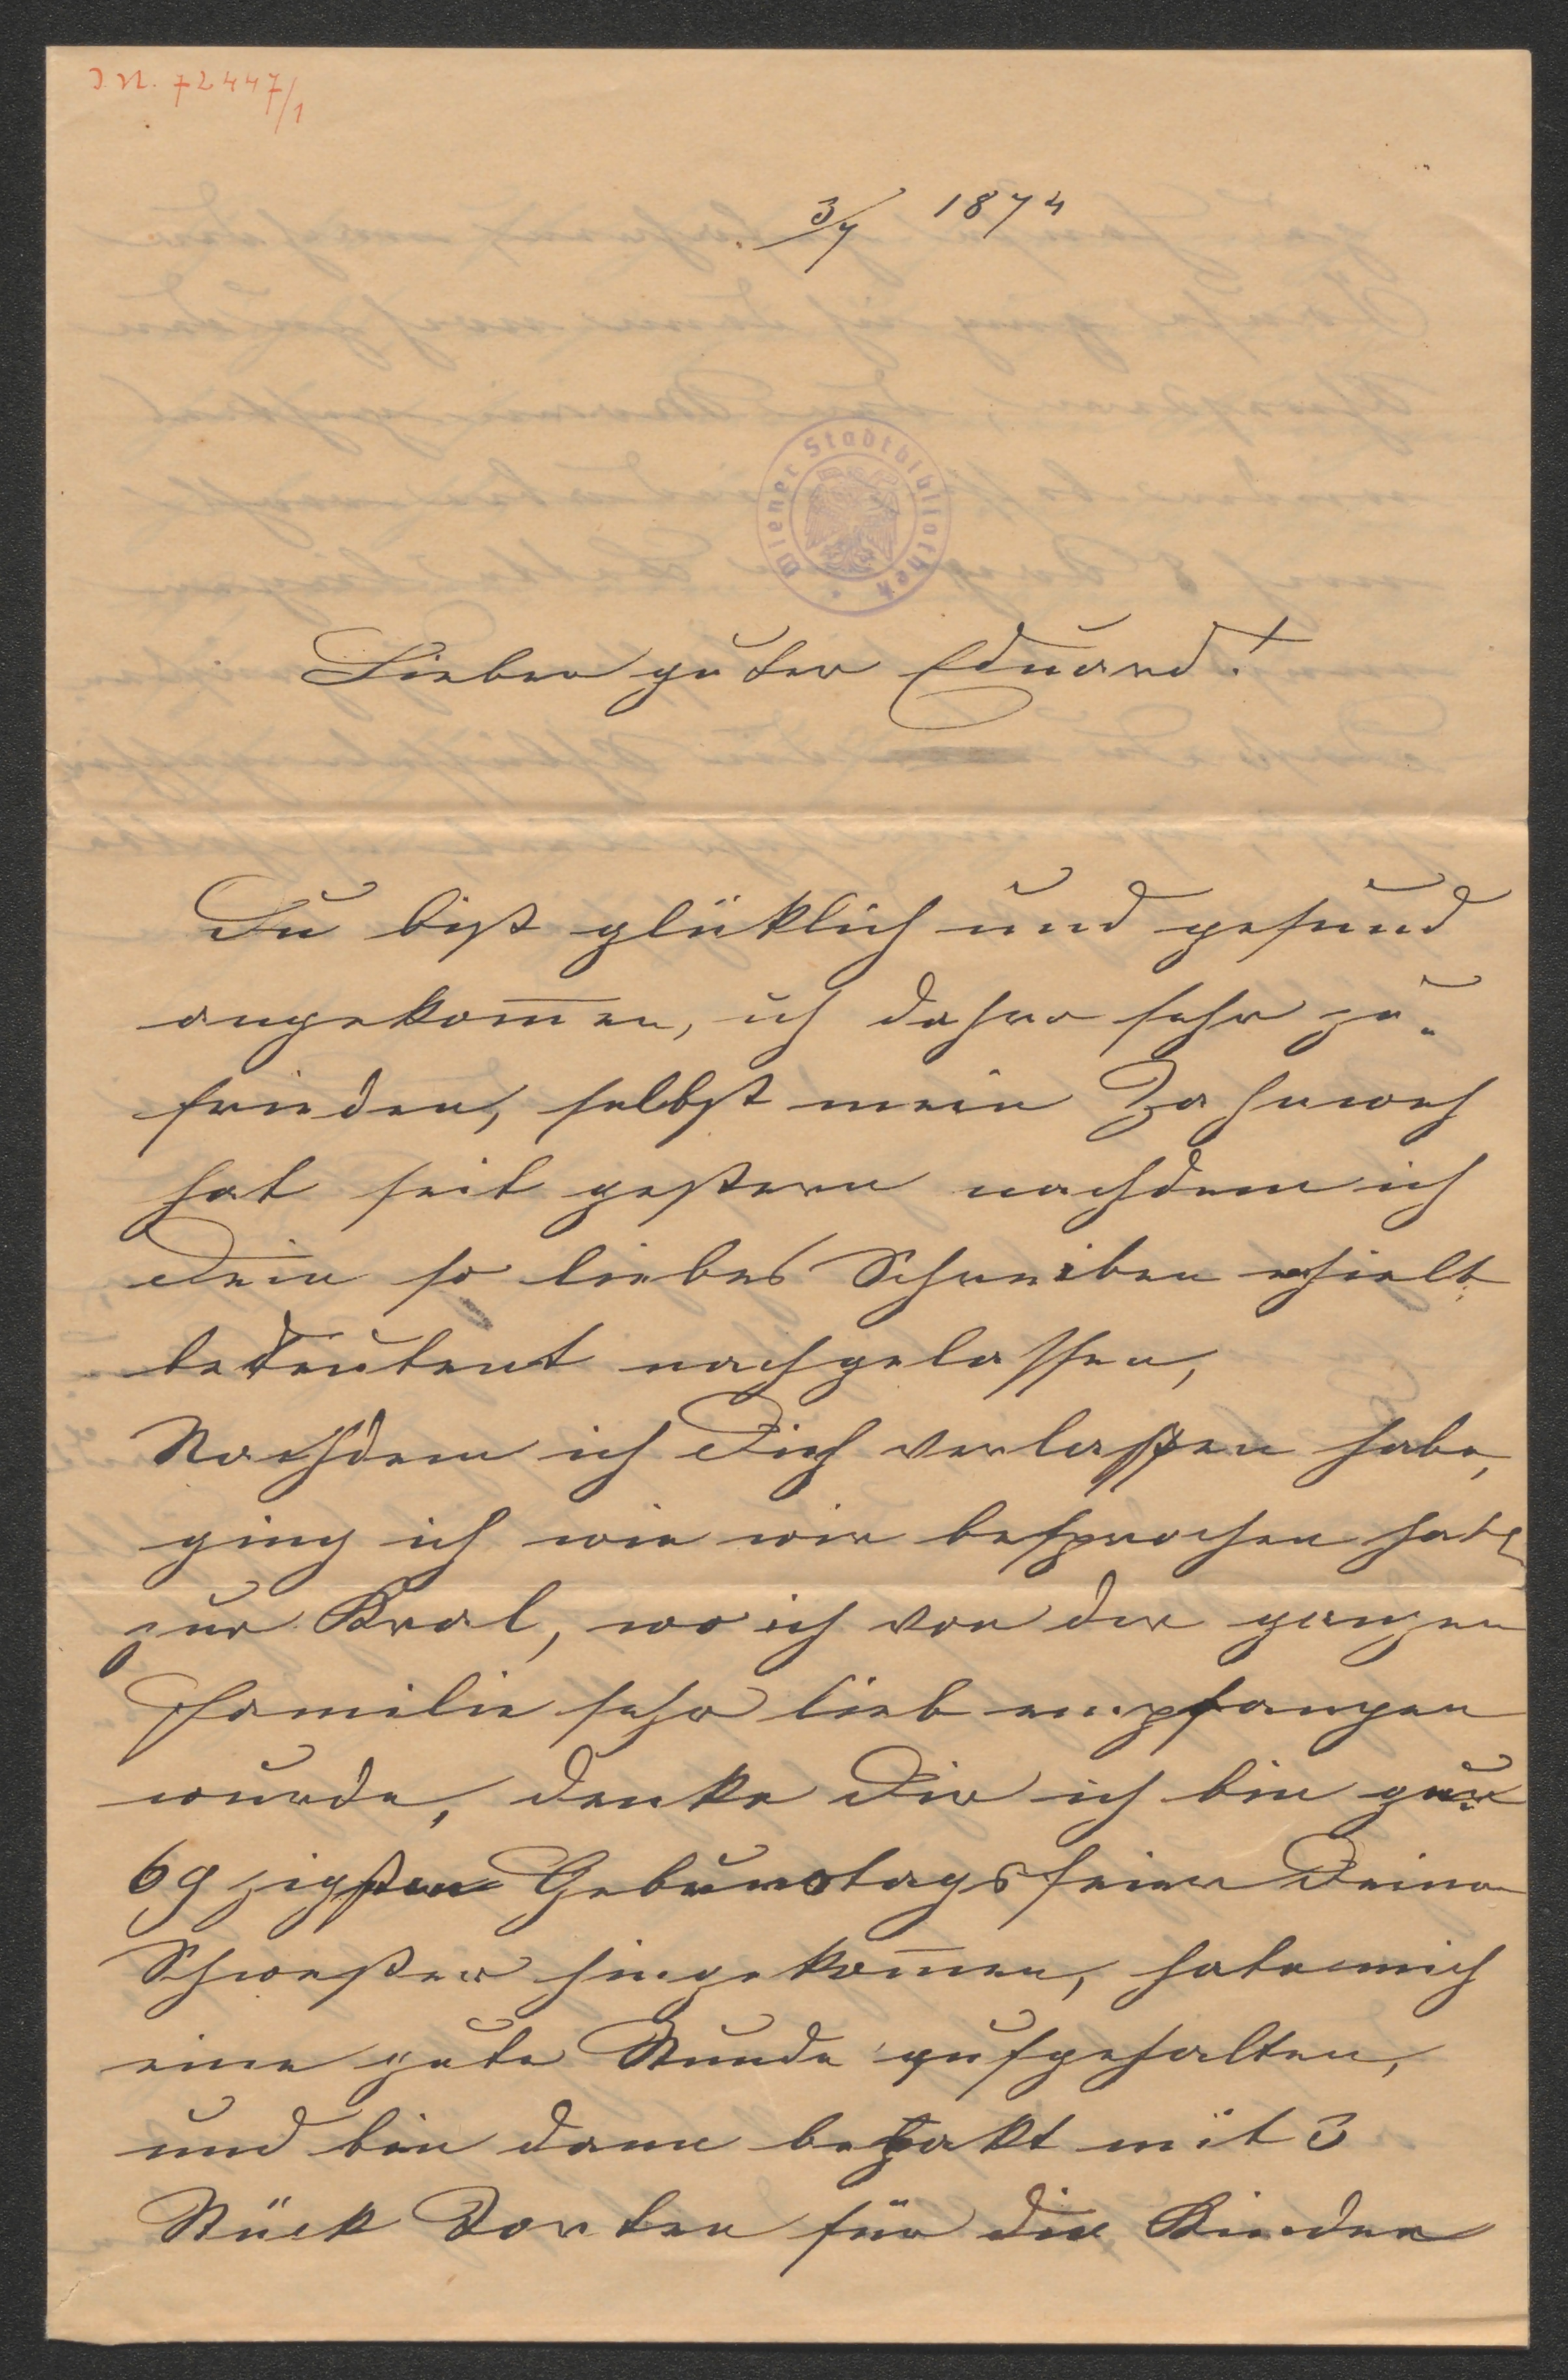 J.N. 72447/1
3/7 1874
Wiener Stadtbibliothek
Lieber guter Eduard!
Du bist glüklich und gesund
angekom̅en, ich daher sehr zu-
frieden, selbst mein Zahnweh
hat seit gestern nachdem ich
Dein so liebes Schreiben erhielt
bedeutent nachgelassen,
Nachdem ich Dich verlassen habe,
ging ich wie wir besprochen hat
zur Kral, wo ich von der ganzen
Familie sehr lieb empfangen
wurde, denke Dir ich bin zur
69 zigsten Geburstagsfeier Deiner
Schwester hingekom̅en, hate mich
eine gute Stunde aufgehalten,
und bin dann bepakt mit 3
Stück Torten für die Kinder